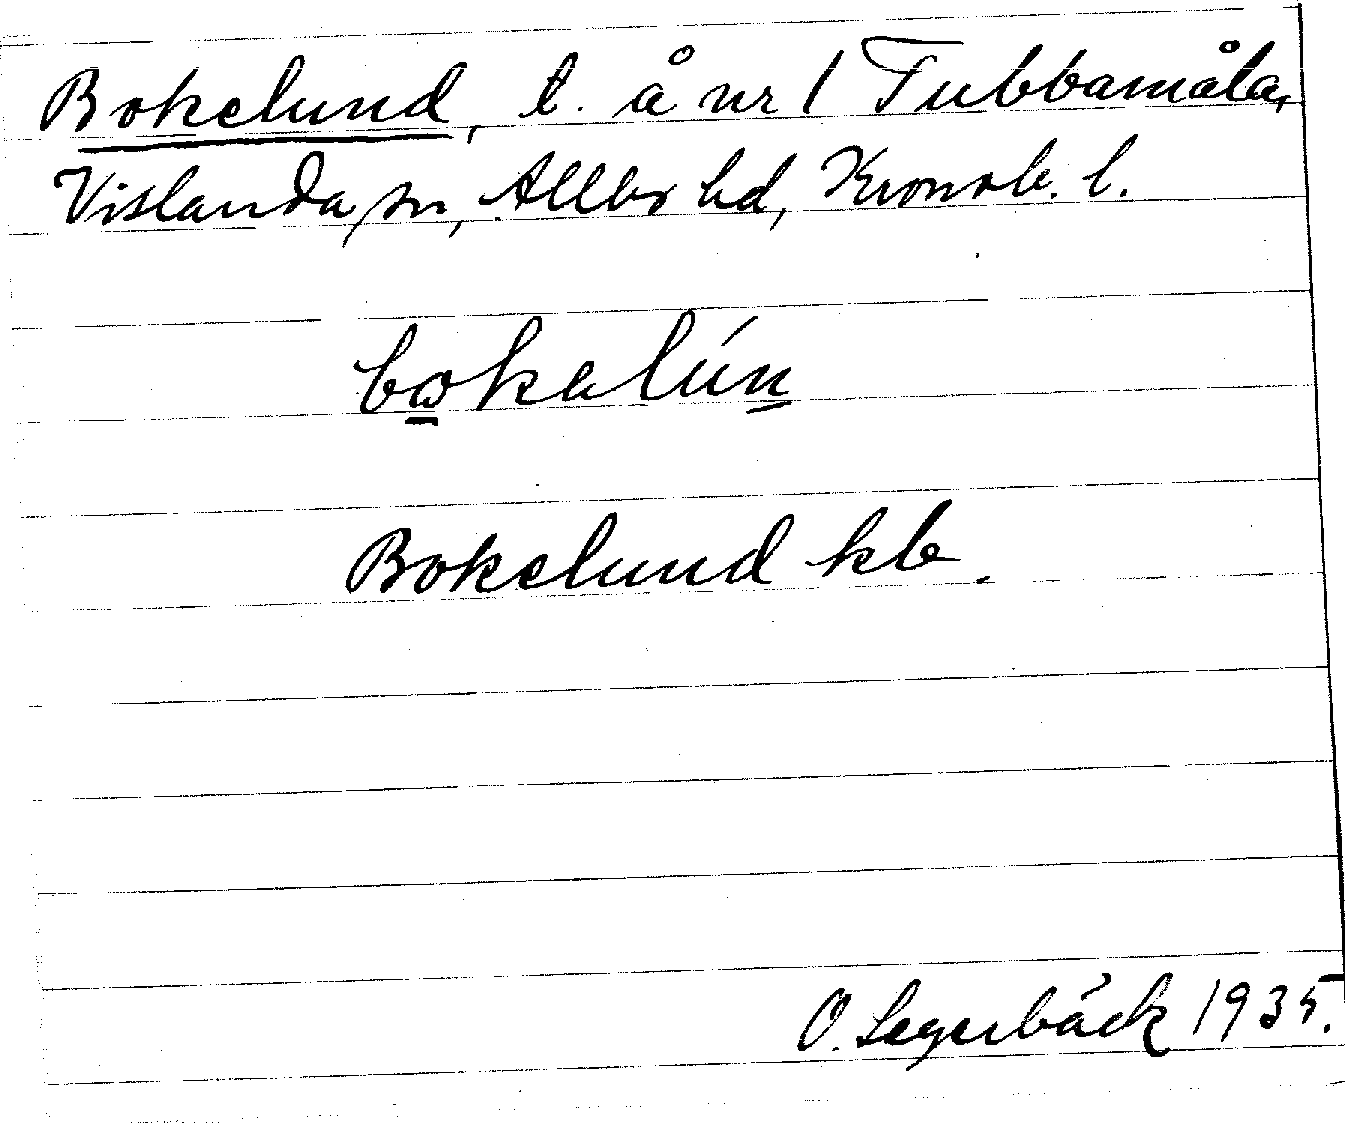 Bokelund, t. å nr 1 Tubbamåla,
Vislanda sn, Allbo hd, Kronob. l.
bωkalún
Bokelund kb.
O. Segerbäck 1935.